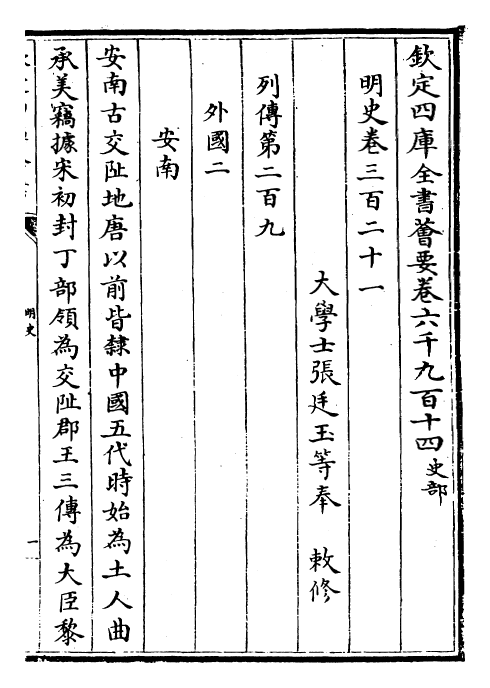 欽定四庫全書薈要卷六千九百十四史部
明史卷三百二十一
大學士張廷玉等奉　敕修
列傳第二百九
外國二
安南
安南古交趾地唐以前皆隸中國五代時始為土人曲
承美竊據宋初封丁部領為交趾郡王三傳為大臣黎
明史
一